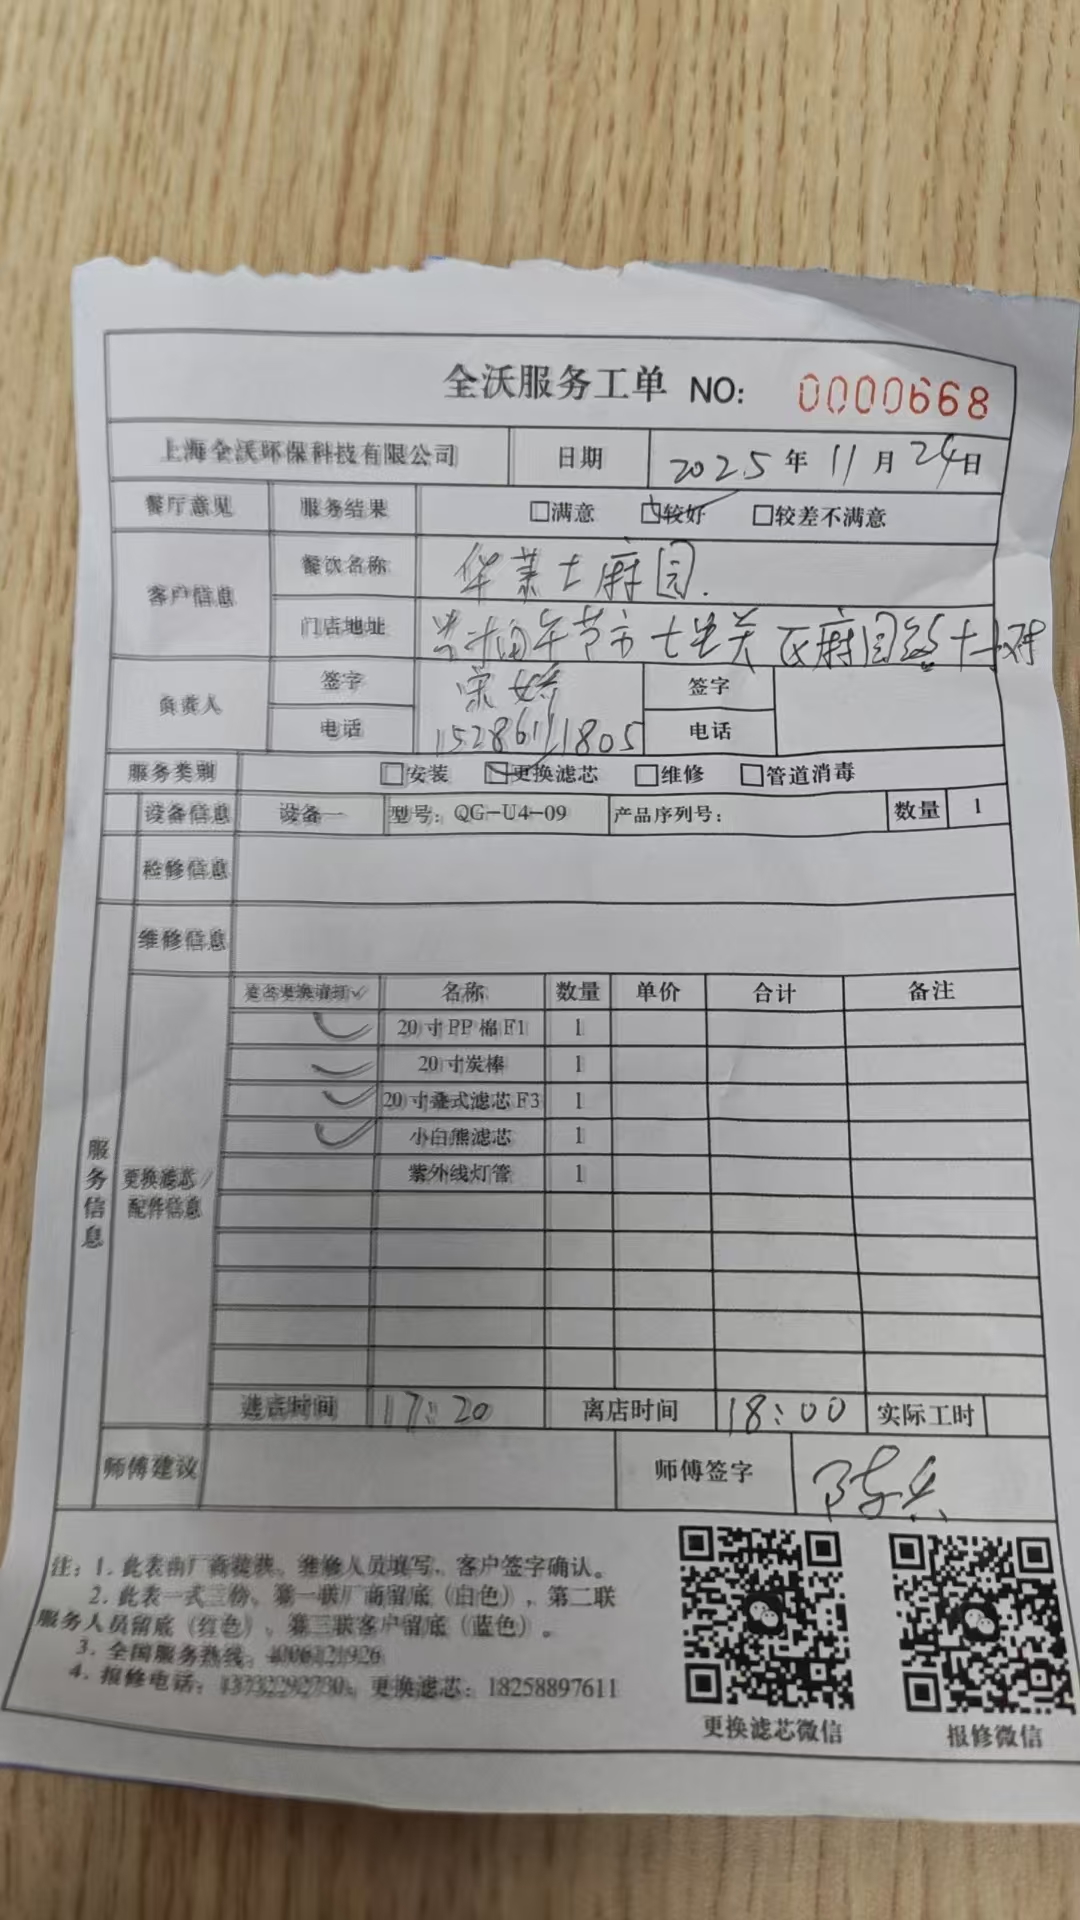 全沃服务工单 NO: 0000668
上海全沃环保科技有限公司 日期 2025年11月24日
餐厅意见 服务结果 □满意 □较好 □较差不满意
客户信息 餐饮名称 华莱士麻园.
门店地址 毕节市七星关区麻园路
负责人 签字 签字
电话 15286111805 电话
服务类别 □安装 □更换滤芯 □维修 □管道消毒
设备信息 设备一 型号: QG-U4-09 产品序列号: 数量 1
检修信息
维修信息
服务信息
更换滤芯/配件信息
是否更换请打✓ 名称 数量 单价 合计 备注
✓ 20寸PP棉F1 1
✓ 20寸炭棒 1
✓ 20寸叠式滤芯F3 1
✓ 小白熊滤芯 1
紫外线灯管 1
进店时间 17:20 离店时间 18:00 实际工时
师傅建议 师傅签字 陈兵
注: 1. 此表由厂商提供, 维修人员填写, 客户签字确认。
2. 此表一式三份, 第一联厂商留底(白色), 第二联
服务人员留底(红色), 第三联客户留底(蓝色)。
3. 全国服务热线: 4006121926
4. 报修电话: 13732292730; 更换滤芯: 18258897611
更换滤芯微信 报修微信